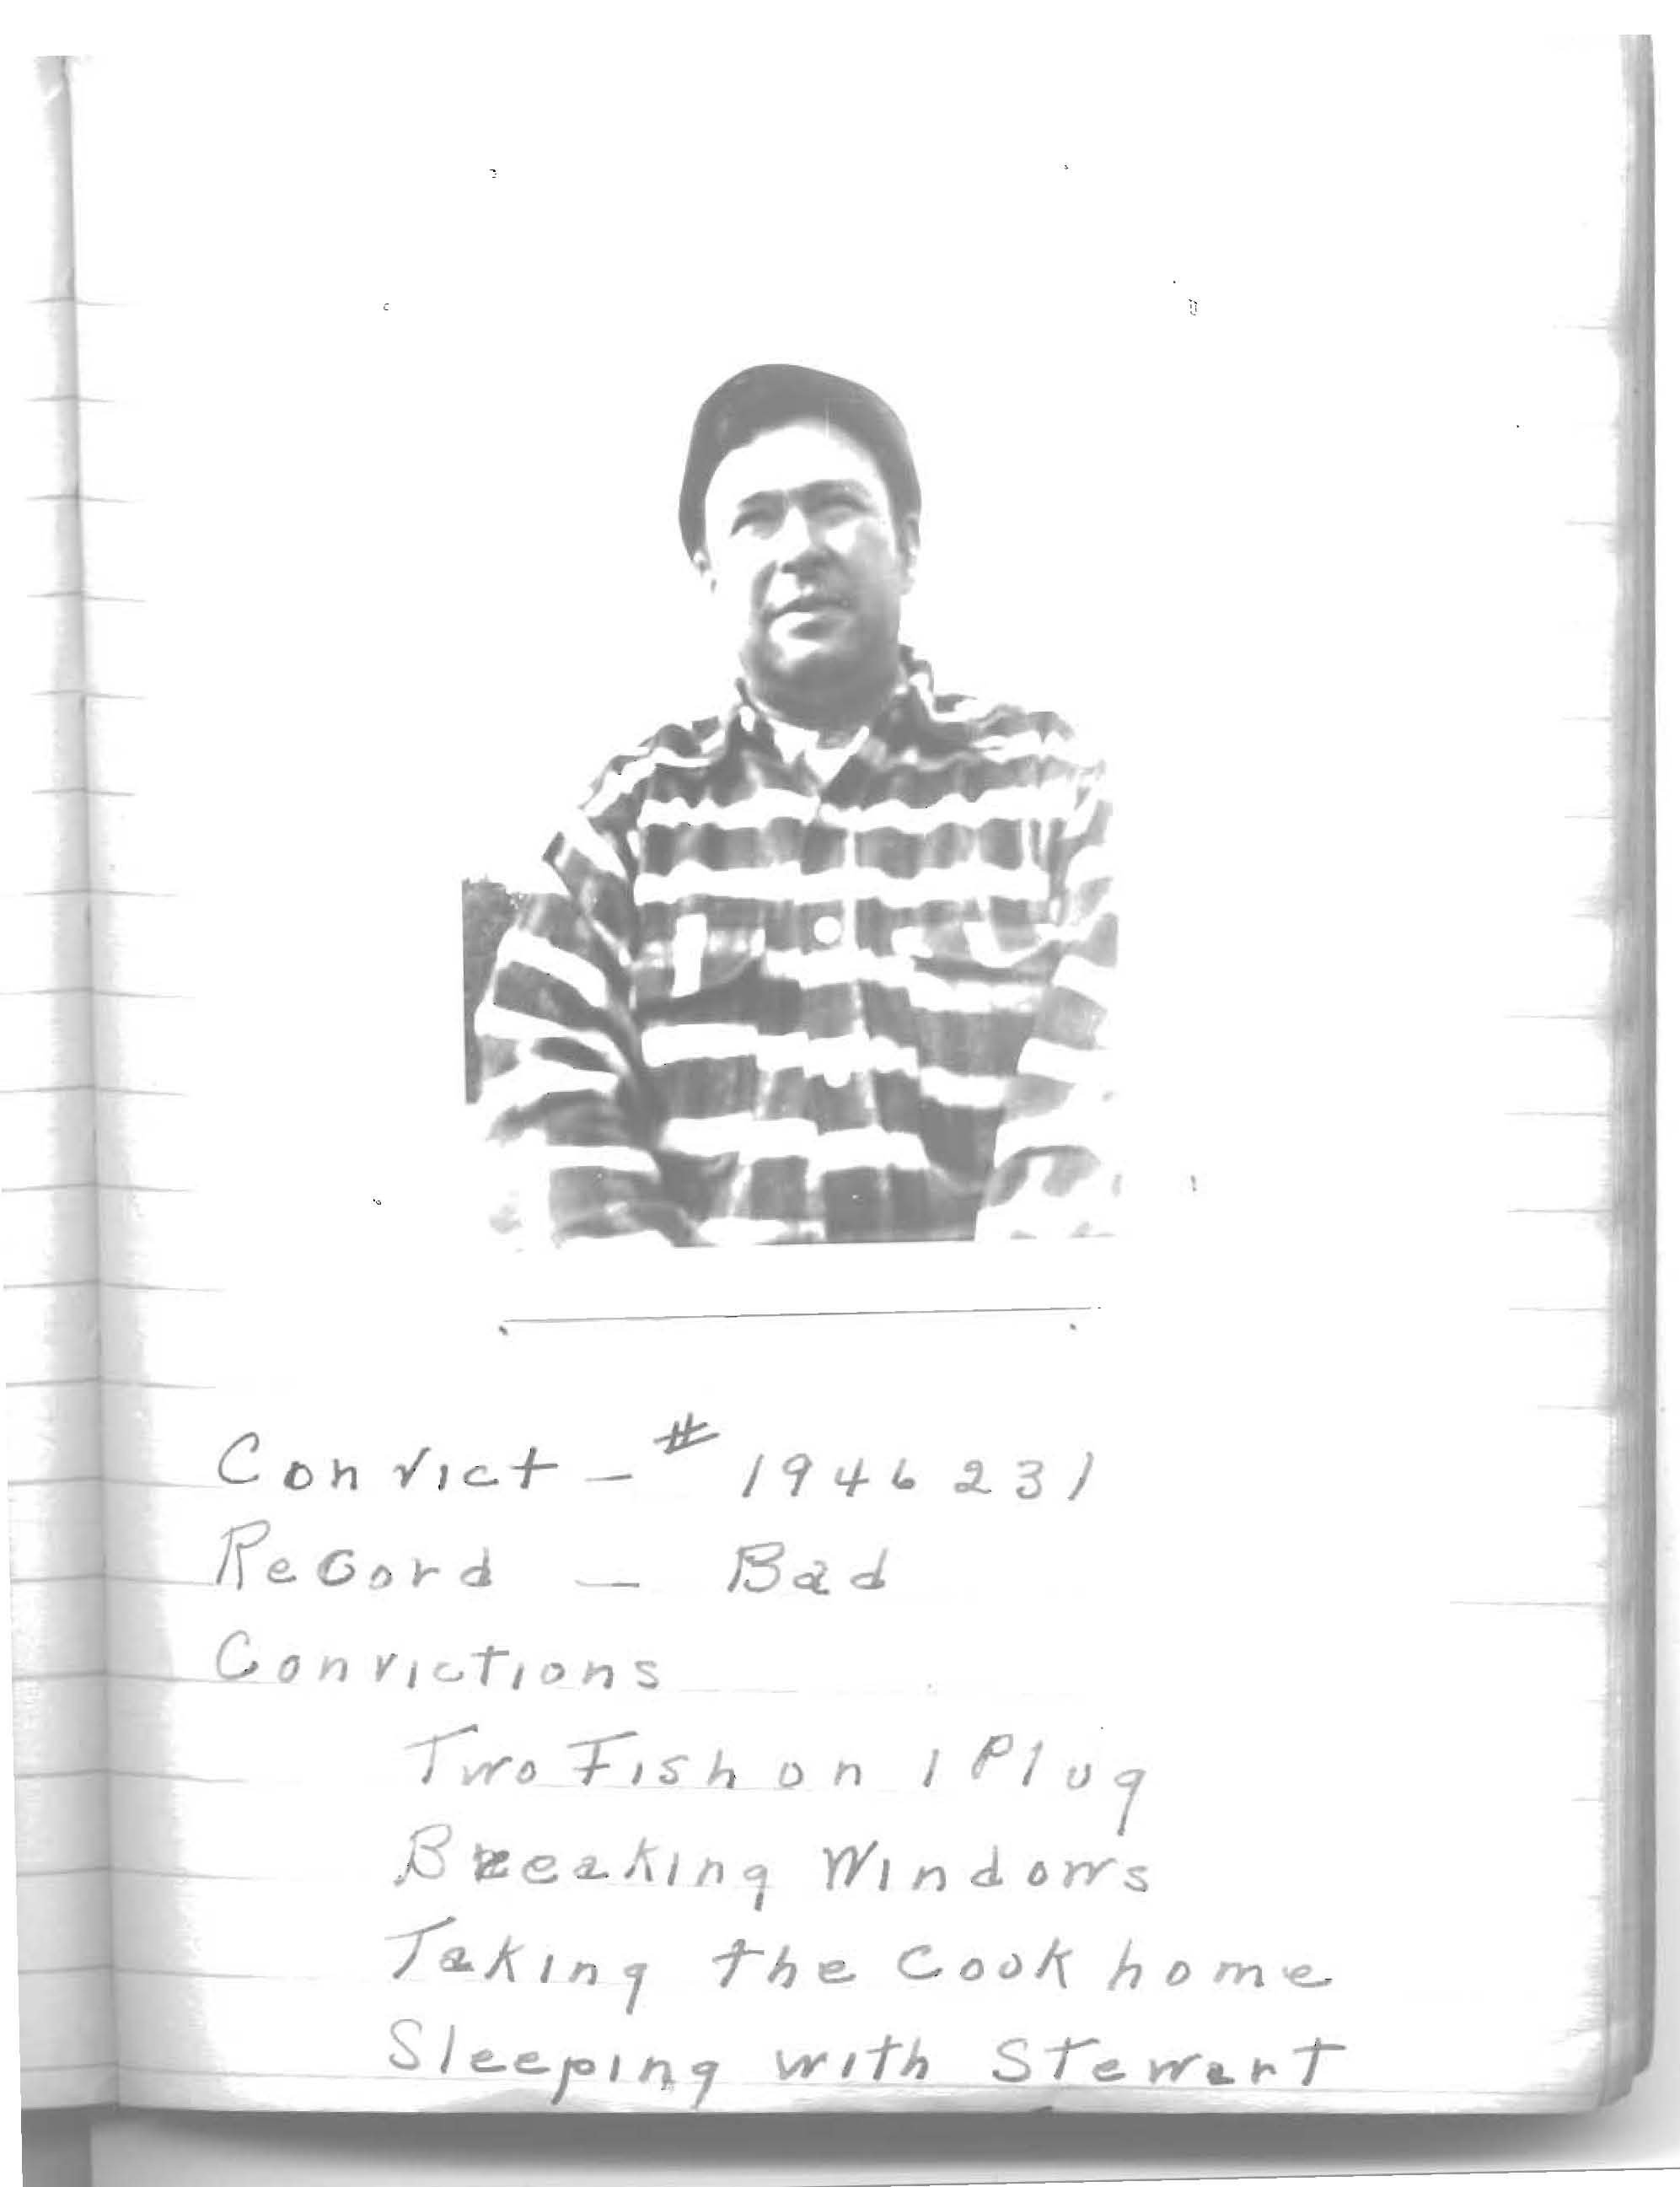 Convict - # 1946231
Record - Bad
Convictions
Two Fish on 1 Plug
Breaking Windows
Taking the Cook home
Sleeping with Stewart